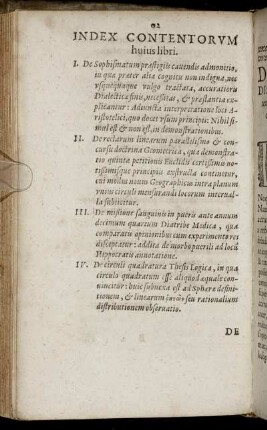 INDEX CONTENTORVM
huius libri.
I. De Sophismatum præstigiis cavendis admonitio,
in qua præter alia cognitu non indigna, nec
usquequaque vulgo tractata, accuratioris
Dialecticæ finis, necessitas, & præstantia ex-
plicantur: Adiuncta interpretatione loci A-
ristotelici, quo docet usum principii: Nihil si-
mul est & non est, in demonstrationibus.
II. De rectarum linearum parallelismo & con-
cursu doctrina Geometrica, qua demonstra-
tio quintæ petitionis Euclidis certissimis no-
tissimisque principiis exstructa continetur,
cui modus novus Geographicus intra planum
unius circuli mensurandi locorum interval-
la subiicitur.
III. De missione sanguinis in pueris ante annum
decimum quartum Diatribe Medica, qua
comparatis opinionibus cum experimento res
disceptatur: addita de morbo puerili ad locū
Hippocratis annotatione.
IV. De circuli quadratura Thesis Logica, in qua
circulo quadratum esse aliquod æquale con-
vincitur: huic subnexa est ad Sphæræ defini-
tionem, & linearum seu rationalium
distributionem observatio.
DE